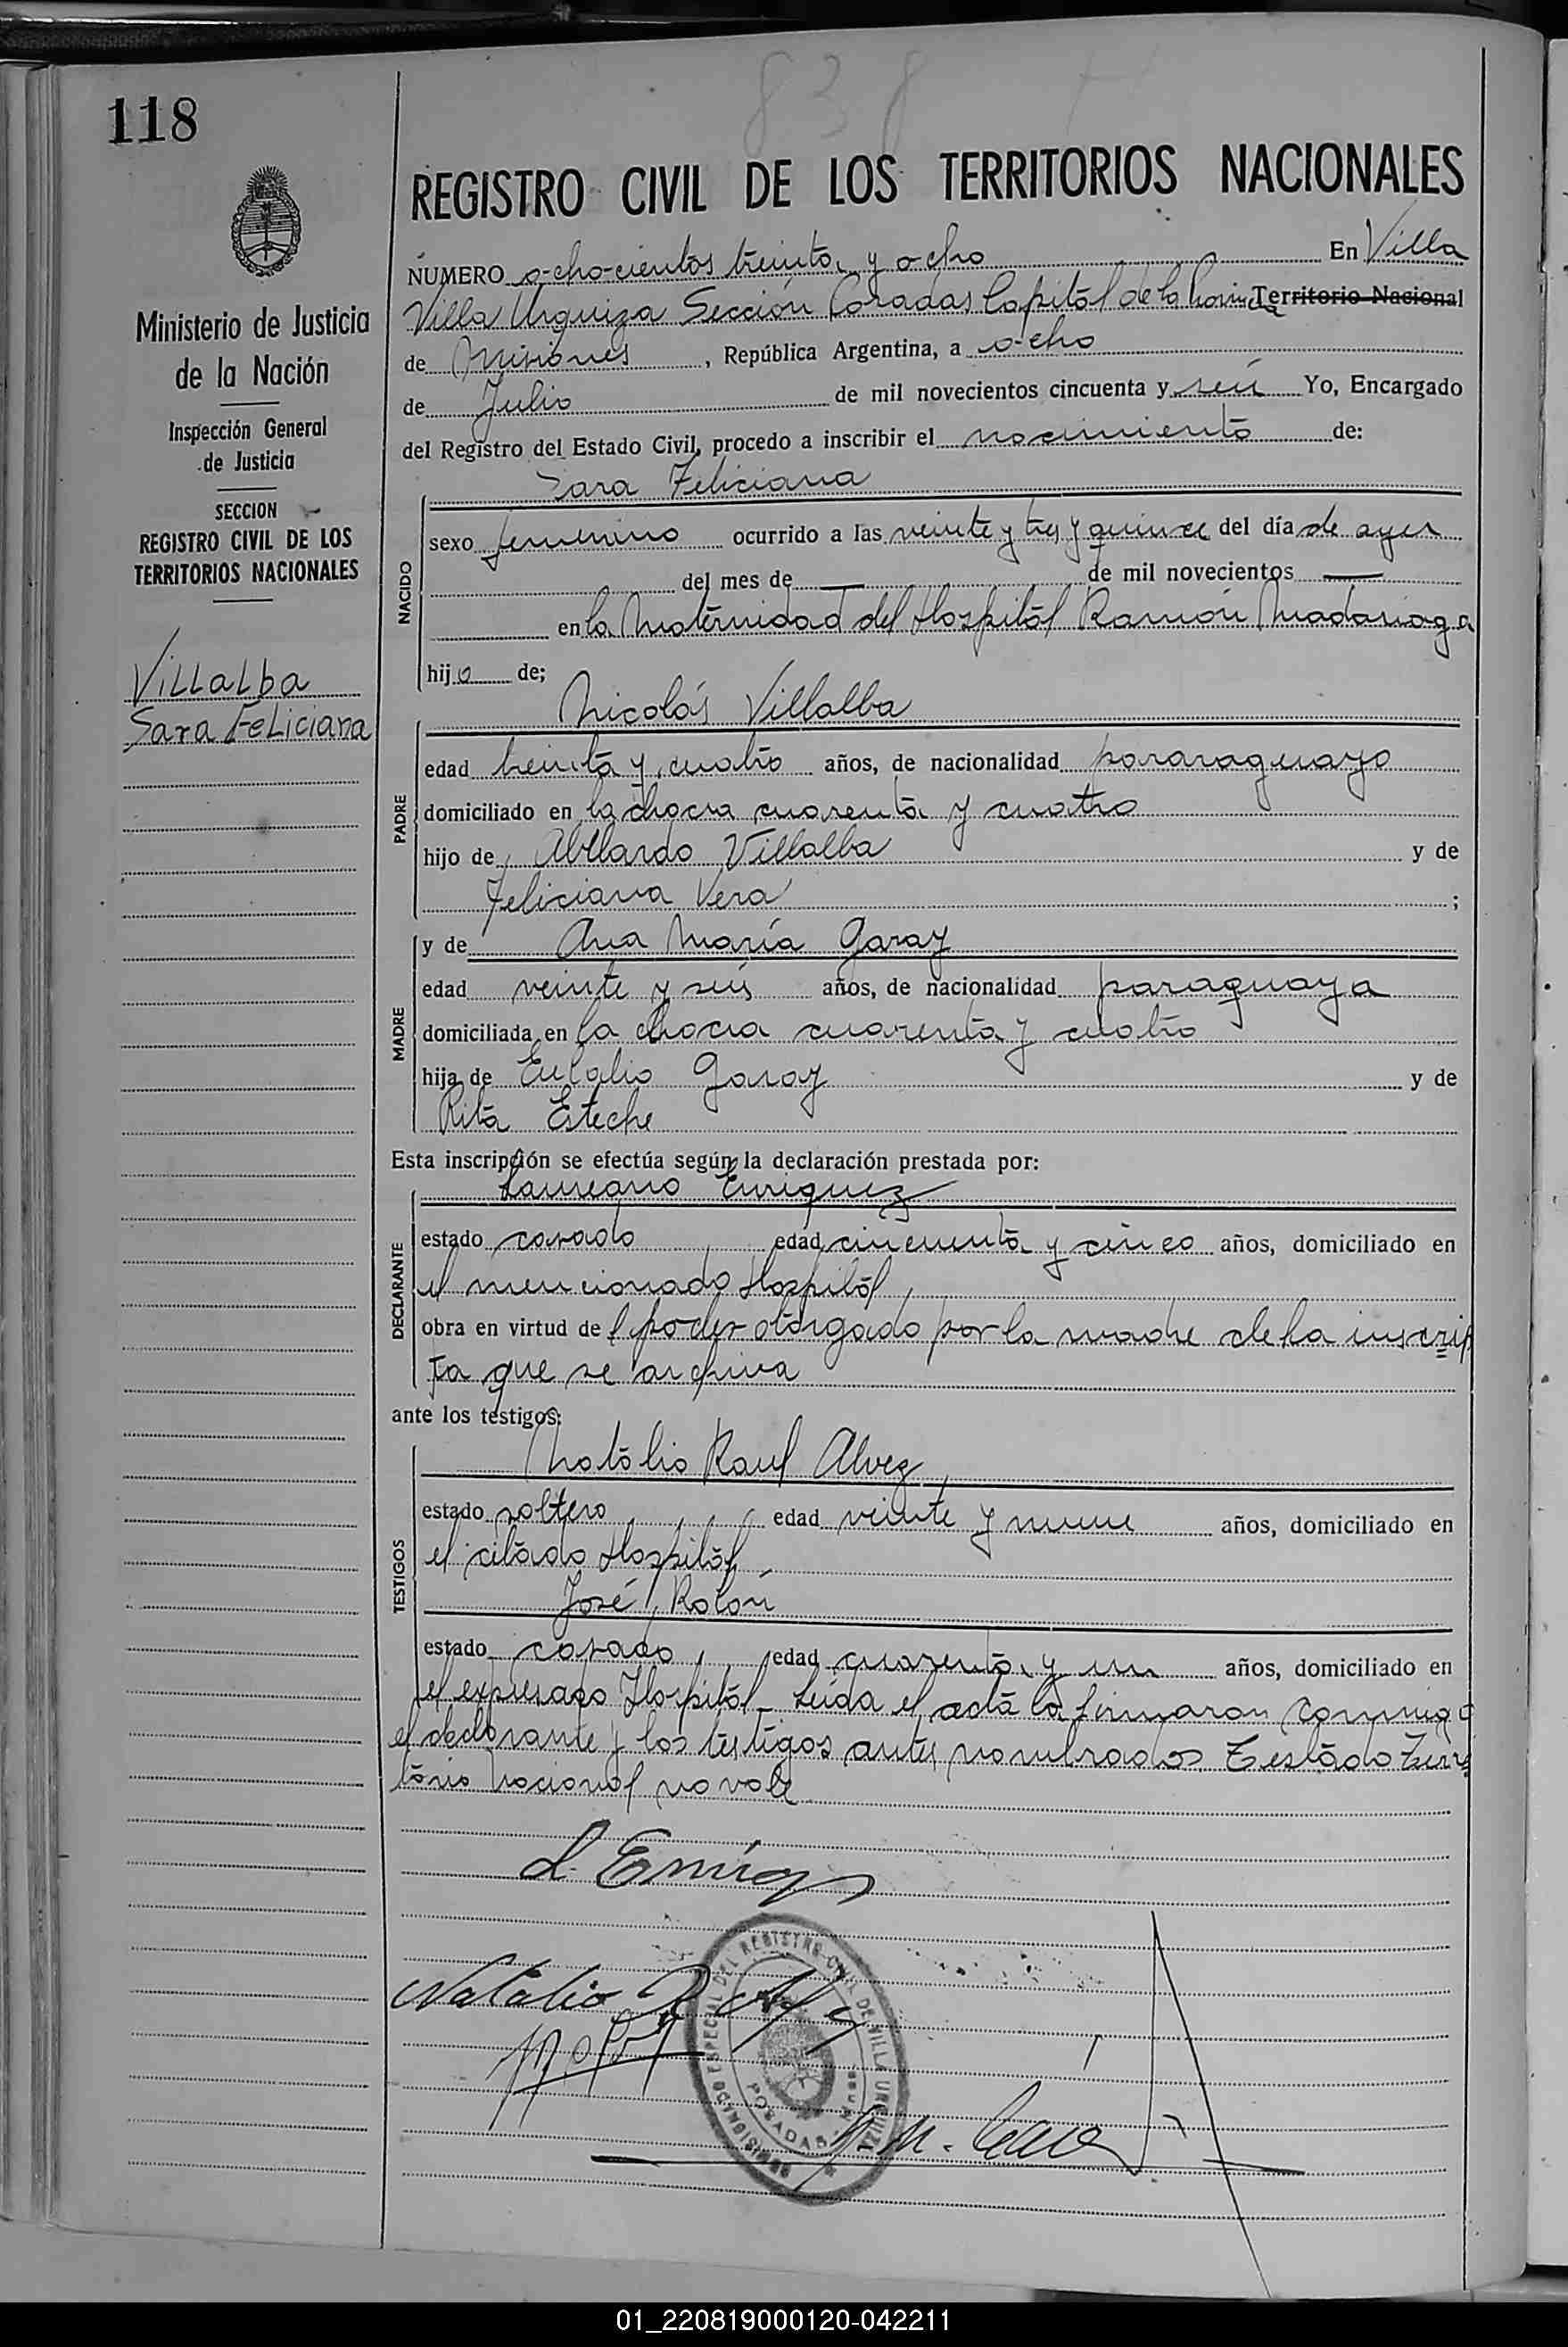 838
118
REGISTRO CIVIL DE LOS TERRITORIOS NACIONALES
Ministerio de Justicia
de la Nación
Inspección General
de Justicia
SECCION
REGISTRO CIVIL DE LOS
TERRITORIOS NACIONALES
Villalba
Sara Feliciana
NUMERO ochocientos treinta y ocho En Villa
Villa Urquiza Sección Posadas Capital de la Provincia Territorio Nacional
de Misiones, República Argentina, a ocho
de Julio de mil novecientos cincuenta y seis Yo, Encargado
del Registro del Estado Civil, procedo a inscribir el nacimiento de:
Sara Feliciana
NACIDO
sexo femenino ocurrido a las veinte y tres y quince del día de ayer
del mes de — de mil novecientos —
en la Maternidad del Hospital Ramón Madariaga
hija de;
Nicolás Villalba
PADRE
edad treinta y cuatro años, de nacionalidad pararaguayo
domiciliado en la chacra cuarenta y cuatro
hijo de Abelardo Villalba y de
Feliciana Vera;
MADRE
y de Ana María Garay
edad veinte y seis años, de nacionalidad paraguaya
domiciliada en la chacra cuarenta y cuatro
hija de Eulalio Garay y de
Rita Esteche
Esta inscripción se efectúa según la declaración prestada por:
Laureano Enriquez
DECLARANTE
estado casado edad cincuenta y cinco años, domiciliado en
el mencionado Hospital
obra en virtud del poder otorgado por la madre de la inscrip
ta que se archiva
ante los testigos:
Natalio Raul Alvez
TESTIGOS
estado soltero edad veinte y nueve años, domiciliado en
el citado Hospital
José Rolón
estado casado, edad cuarenta y un años, domiciliado en
el expresado Hospital - Leida el acta la firmaron conmigo
el declarante y los testigos antes nombrados. Testado Terri
torio Nacional no vale
L. Enriq
Natalio R
COMISIONADO ESPECIAL DEL REGISTRO CIVIL DE VILLA URQUIZA
POSADAS - Mnes
01_220819000120-042211